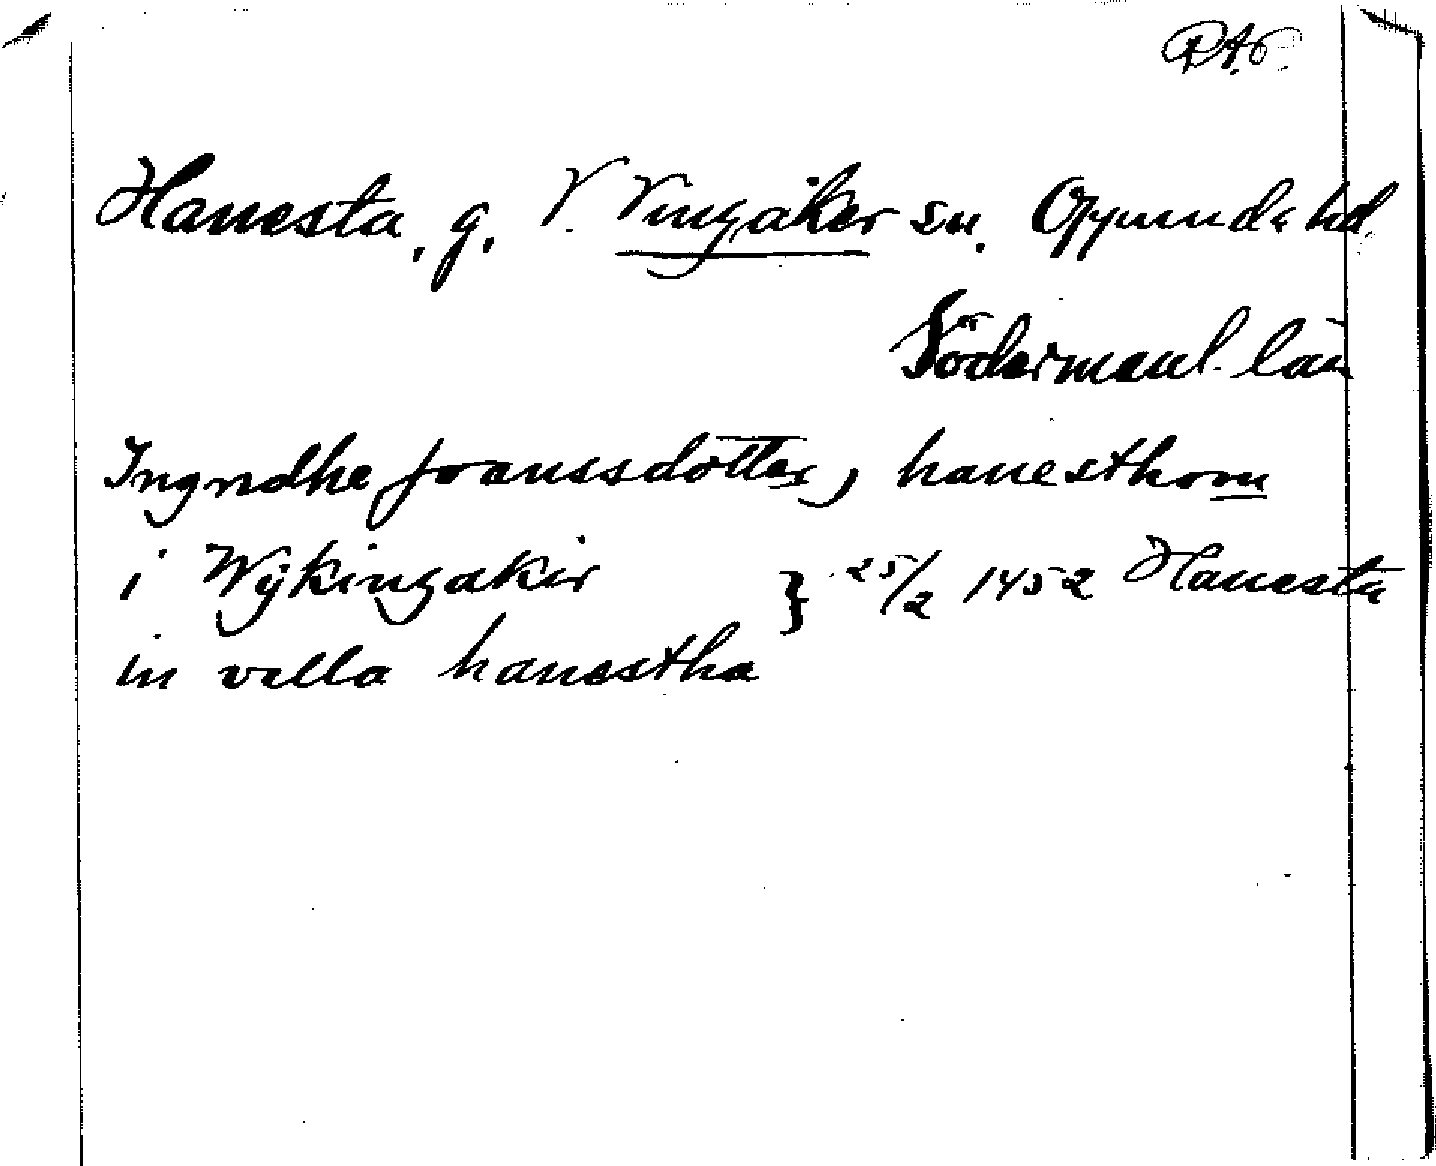 RAp.
Hanesta, g. V. Vingåker sn. Oppunda hd
Södermanl. län
Ingridhe joanssdotter, hanesthom
i Wÿkingakir } 25/2 1452 Hanesta
in villa hanestha